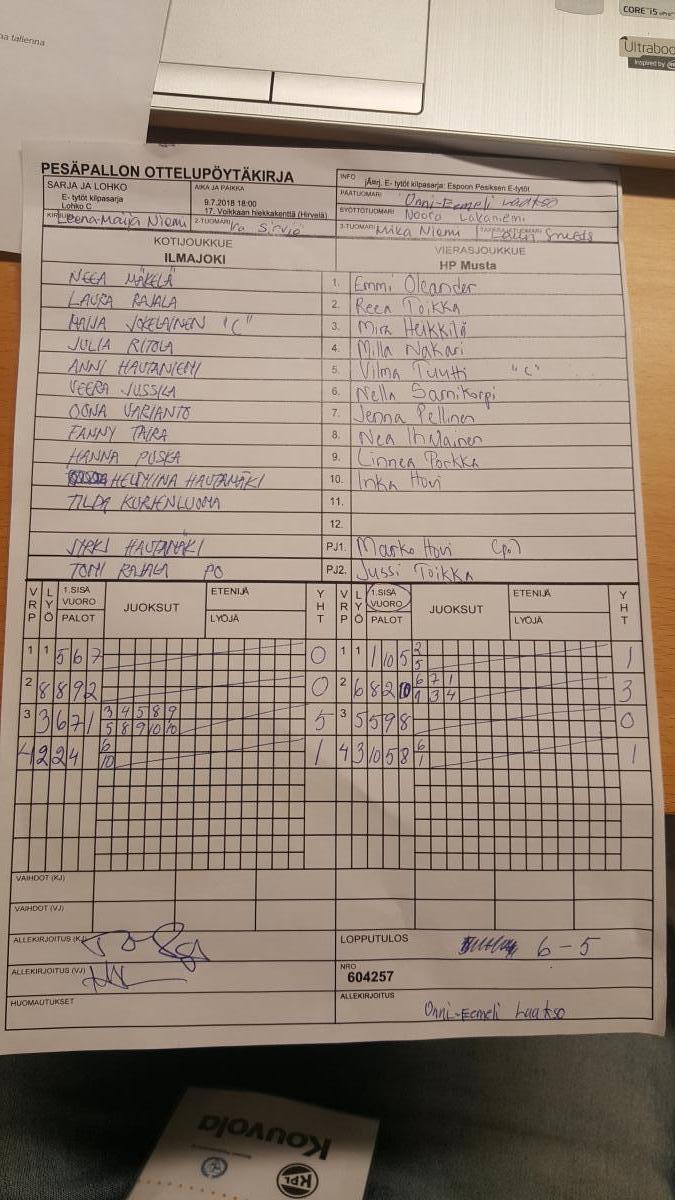 na tallenna
CORE i5
Ultraboo
Inspired by
PESÄPALLON OTTELUPÖYTÄKIRJA
SARJA JA LOHKO
E- tytöt kilpasarja
Lohko C
AIKA JA PAIKKA
9.7.2018 18:00
17. Voikkaan hiekkakenttä (Hirvelä)
INFO
jÄrrj. E- tytöt kilpasarja: Espoon Pesiksen E-tytöt
PÄÄTUOMARI Onni-Eemeli Laakso
KIRJURI Leena-Maija Niemi
2-TUOMARI Ira Sirviö
SYÖTTÖTUOMARI Noora Lakaniemi
3-TUOMARI Mika Niemi
Smeds
KOTIJOUKKUE
ILMAJOKI
VIERASJOUKKUE
HP Musta
NEEA MÄKELÄ 1. Emmi Oleander
LAURA RAJALA 2. Reea Toikka
MAIJA JOKELAINEN "C" 3. Mira Heikkilä
JULIA RITOLA 4. Milla Nakari
ANNI HAUTANIEMI 5. Vilma Tuutti "C"
VEERA JUSSILA 6. Nella Sarnikorpi
OONA VARIANTO 7. Jenna Pellinen
FANNY TAIRA 8. Nea Ihalainen
HANNA PUSKA 9. Linnea Porkka
HELMIINA HAUTAMÄKI 10. Inka Hovi
TILDA KURJENLUOMA 11.
12.
JYRKI HAUTAMÄKI PJ1. Marko Hovi (po)
TOMI RAJALA PO PJ2. Jussi Toikka
VRP LYÖ 1.SISÄ VUORO PALOT JUOKSUT ETENIJÄ LYÖJÄ YHT VRP LYÖ 1.SISÄ VUORO PALOT JUOKSUT ETENIJÄ LYÖJÄ YHT
1 1 5 6 7 0 1 1 1 10 5 2 1
5
2 8 8 9 2 0 2 6 8 2 10 6 7 1 3
1 3 4
3 3 6 7 1 3 4 5 8 9 5 3 5 5 9 8 0
5 8 9 10 10
4 2 2 4 6 1 4 3 10 5 8 6 1
10 1
VAIHDOT (KJ)
VAIHDOT (VJ)
ALLEKIRJOITUS (KJ)
LOPPUTULOS 6 - 5
ALLEKIRJOITUS (VJ)
NRO
604257
HUOMAUTUKSET
ALLEKIRJOITUS
Onni-Eemeli Laakso
Kouvola
KPL